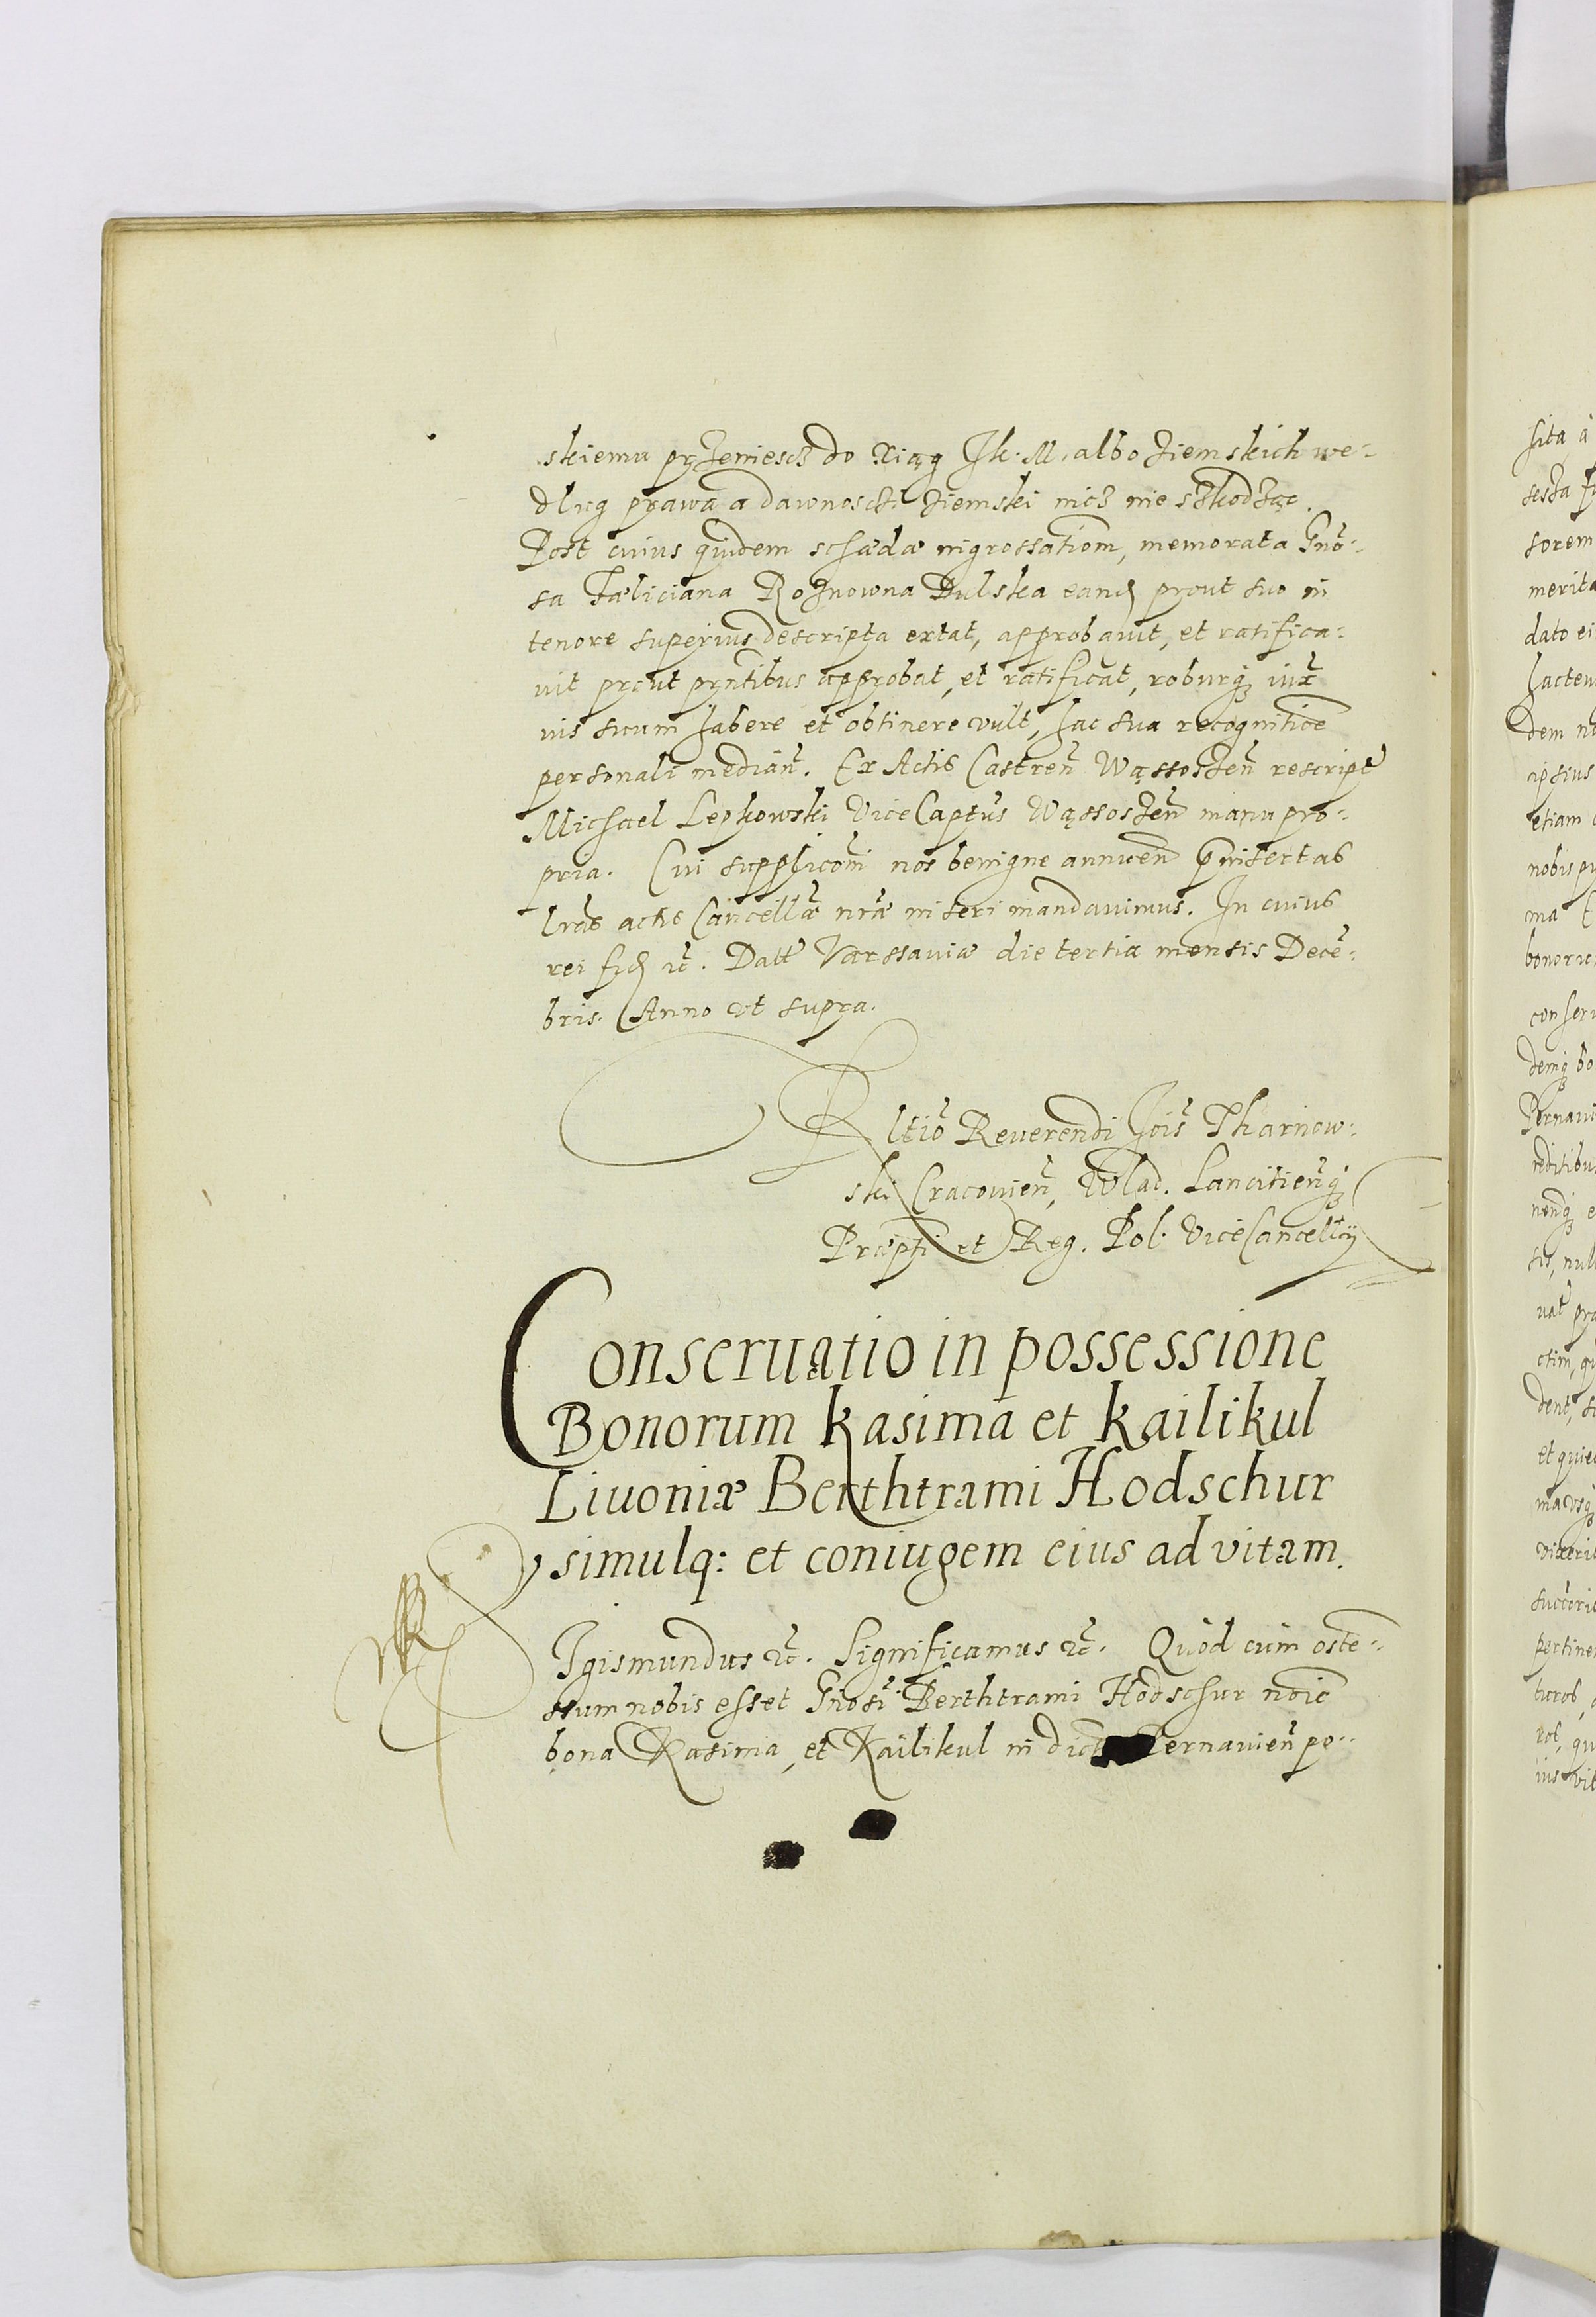 skiemu przeniescz do Xiąg Jk. M. albo Ziemskich we-
dlug prawa a dawnosczi ziemski nicz nie szkodząc.
Post cuius quidem schædæ ingrossatiom, memorata Gnõ-
sa Fæliciana Roznowna Dulska eand prout suo in
tenore superius descripta extat, approbauit, et ratifica-
uit prout pñtibus approbat, et ratificat, roburq iux
uis suum habere et obtinere vult, hac sua recognitioe
personali median. Ex Actis Castren Wąssoszen rescript
Michael Lepkowski ViceCaptus Wąssoszen manu pro-
pria. Cui suppliconi nos benigne annuen pinsertas
lras actis Cancellæ nræ inseri mandauimus. In cuius
rei fid etc. Datt Varssauiæ die tertia mensis Decē-
bris. Anno vt supra.
Rltio Reuerendi Jois Tharnow-
ski Cracouien, Wlad. Lancitienq
Præpti et Reg. Pol. ViceCancellrij
Conseruatio in possessione
Bonorum Kasima et Kailikul
Liuoniæ Berthtrami Hodschur
simulq: et coniugem eius ad vitam.
Igismundus etc. Significamus etc. Quod cum oste-
nsum nobis esset Gnosi Berthtrami Hodschur noie
bona Kasima, et Kailikul in Pernauien po-
sita a
sorem
merita
dato ei
hacten
dem no
ipsius
etiam
nobis pr
ma
bonoru
conseru
demq bo
Pernaui
reditibu
nenq e
sis, null
uat pro
ctim, qu
dent, su
et quie
ma vsq
vixeri
succori
pertine
turos
qu
ius vit